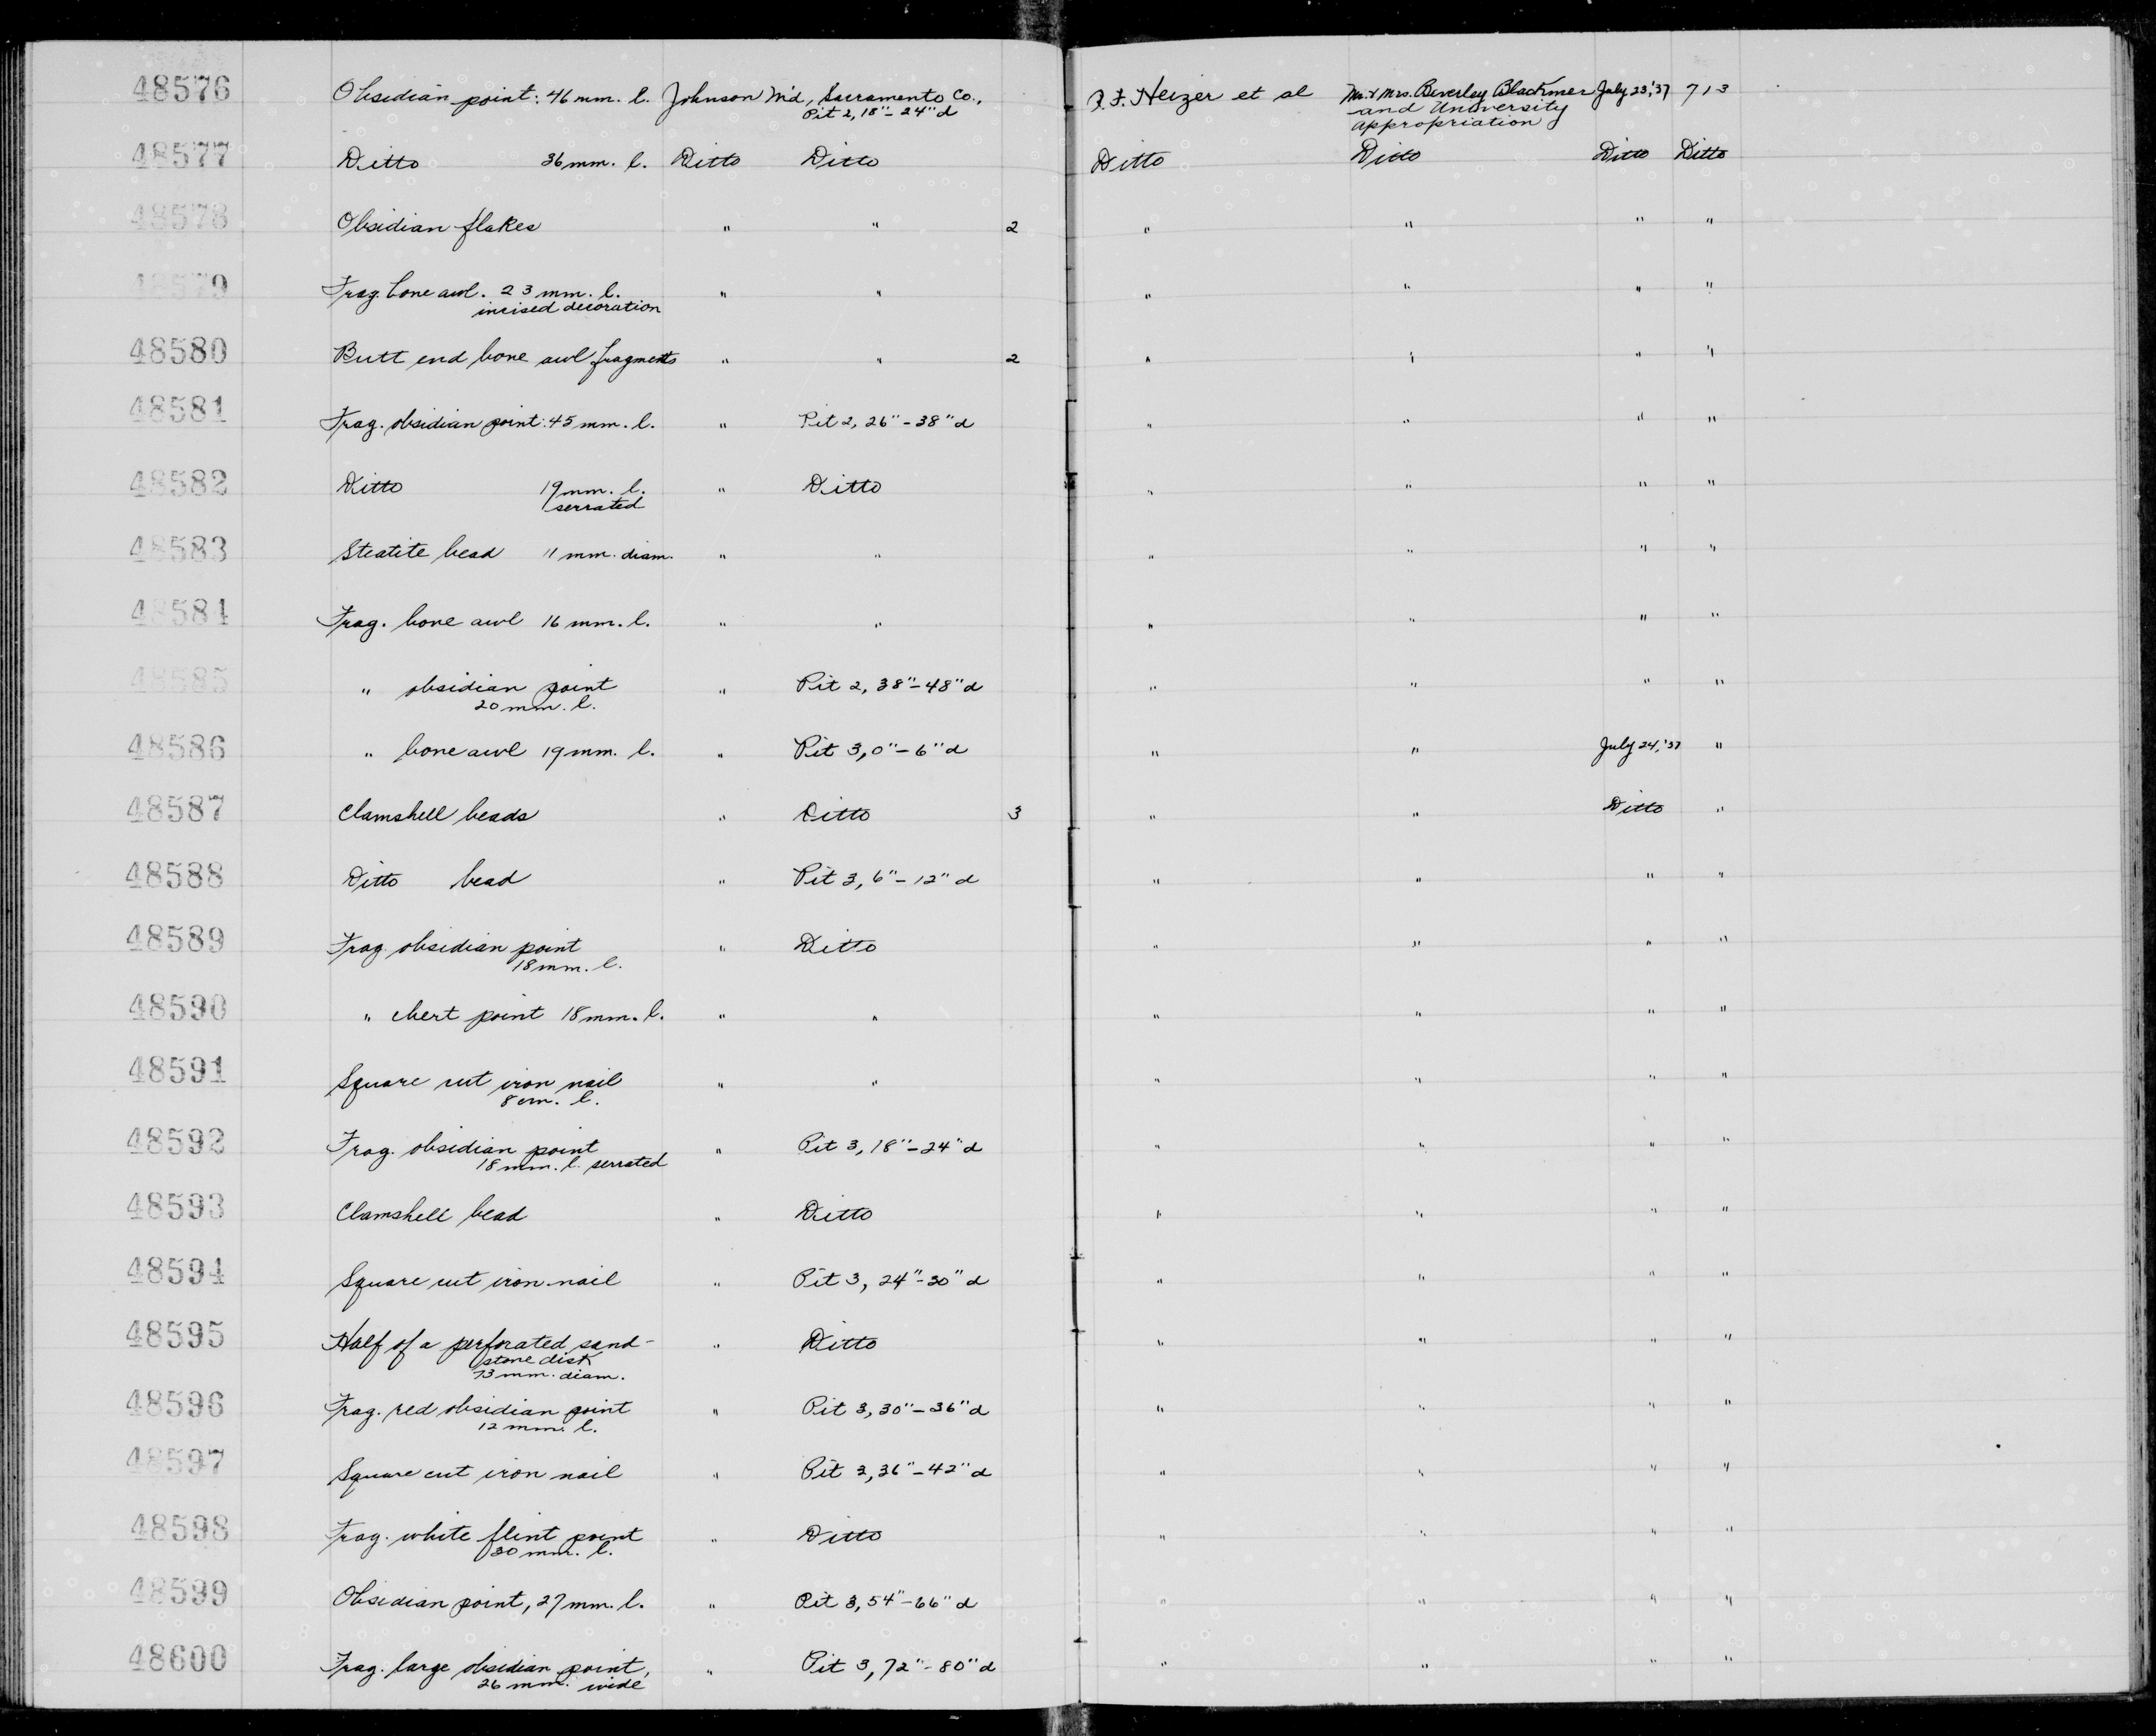 48576 Obsidian point: 46 mm. l. Johnson M'd, Sacramento Co., R. F. Heizer et al Mr. & Mrs. Beverley Blackmer July 23, '37 713
Pit 2, 18"-24" d and University
Appropriation
48577 Ditto 36 mm. l. Ditto Ditto Ditto Ditto Ditto Ditto
48578 Obsidian flakes " " 2 " " " "
48579 Frag. bone awl. 23 mm. l. " " " " " "
incised decoration
48580 Butt end bone awl fragments " " 2 " " " "
48581 Frag. obsidian point: 45 mm. l. " Pit 2, 26"-38" d " " " "
48582 Ditto 19 mm. l. " Ditto " " " "
serrated
48583 Steatite bead 11 mm. diam. " " " " " "
48584 Frag. bone awl 16 mm. l. " " " " " "
48585 " obsidian point " Pit 2, 38"-48" d " " " "
20 mm. l.
48586 " bone awl 19 mm. l. " Pit 3, 0"-6" d " " July 24, '37 "
48587 Clamshell beads " Ditto 3 " " Ditto "
48588 Ditto bead " Pit 3, 6"-12" d " " " "
48589 Frag. obsidian point " Ditto " " " "
18 mm. l.
48590 " chert point 18 mm. l. " " " " " "
48591 Square cut iron nail " " " " " "
8 cm. l.
48592 Frag. obsidian point " Pit 3, 18"-24" d " " " "
18 mm. l. serrated
48593 Clamshell bead " Ditto " " " "
48594 Square cut iron nail " Pit 3, 24"-30" d " " " "
48595 Half of a perforated sand- " Ditto " " " "
stone disk
73 mm. diam.
48596 Frag. red obsidian point " Pit 3, 30"-36" d " " " "
12 mm. l.
48597 Square cut iron nail " Pit 3, 36"-42" d " " " "
48598 Frag. white flint point " Ditto " " " "
30 mm. l.
48599 Obsidian point, 27 mm. l. " Pit 3, 54"-66" d " " " "
48600 Frag. large obsidian point, " Pit 3, 72"-80" d " " " "
26 mm. wide